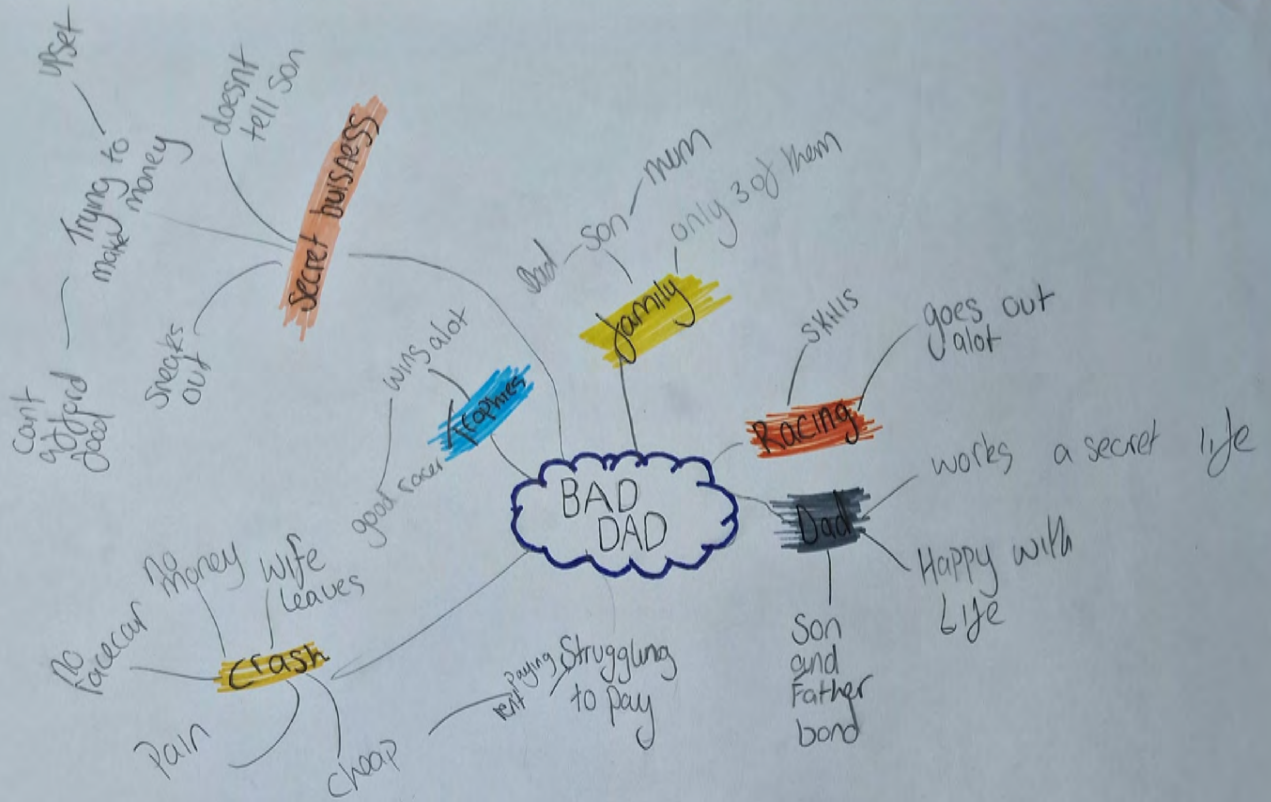 BAD
DAD
Secret buisness
doesnt
tell son
Trying to
make money
upset
cant
afford
food
Sneaks
out
family
Dad
son
mum
only 3 of them
Trophies
wins alot
good racer
Racing
skills
goes out
alot
Dad
works a secret life
Happy with
Life
Son
and
Father
bond
Struggling
to pay
Paying
rent
Crash
No
money
wife
Leaves
No
racecar
Pain
Cheap